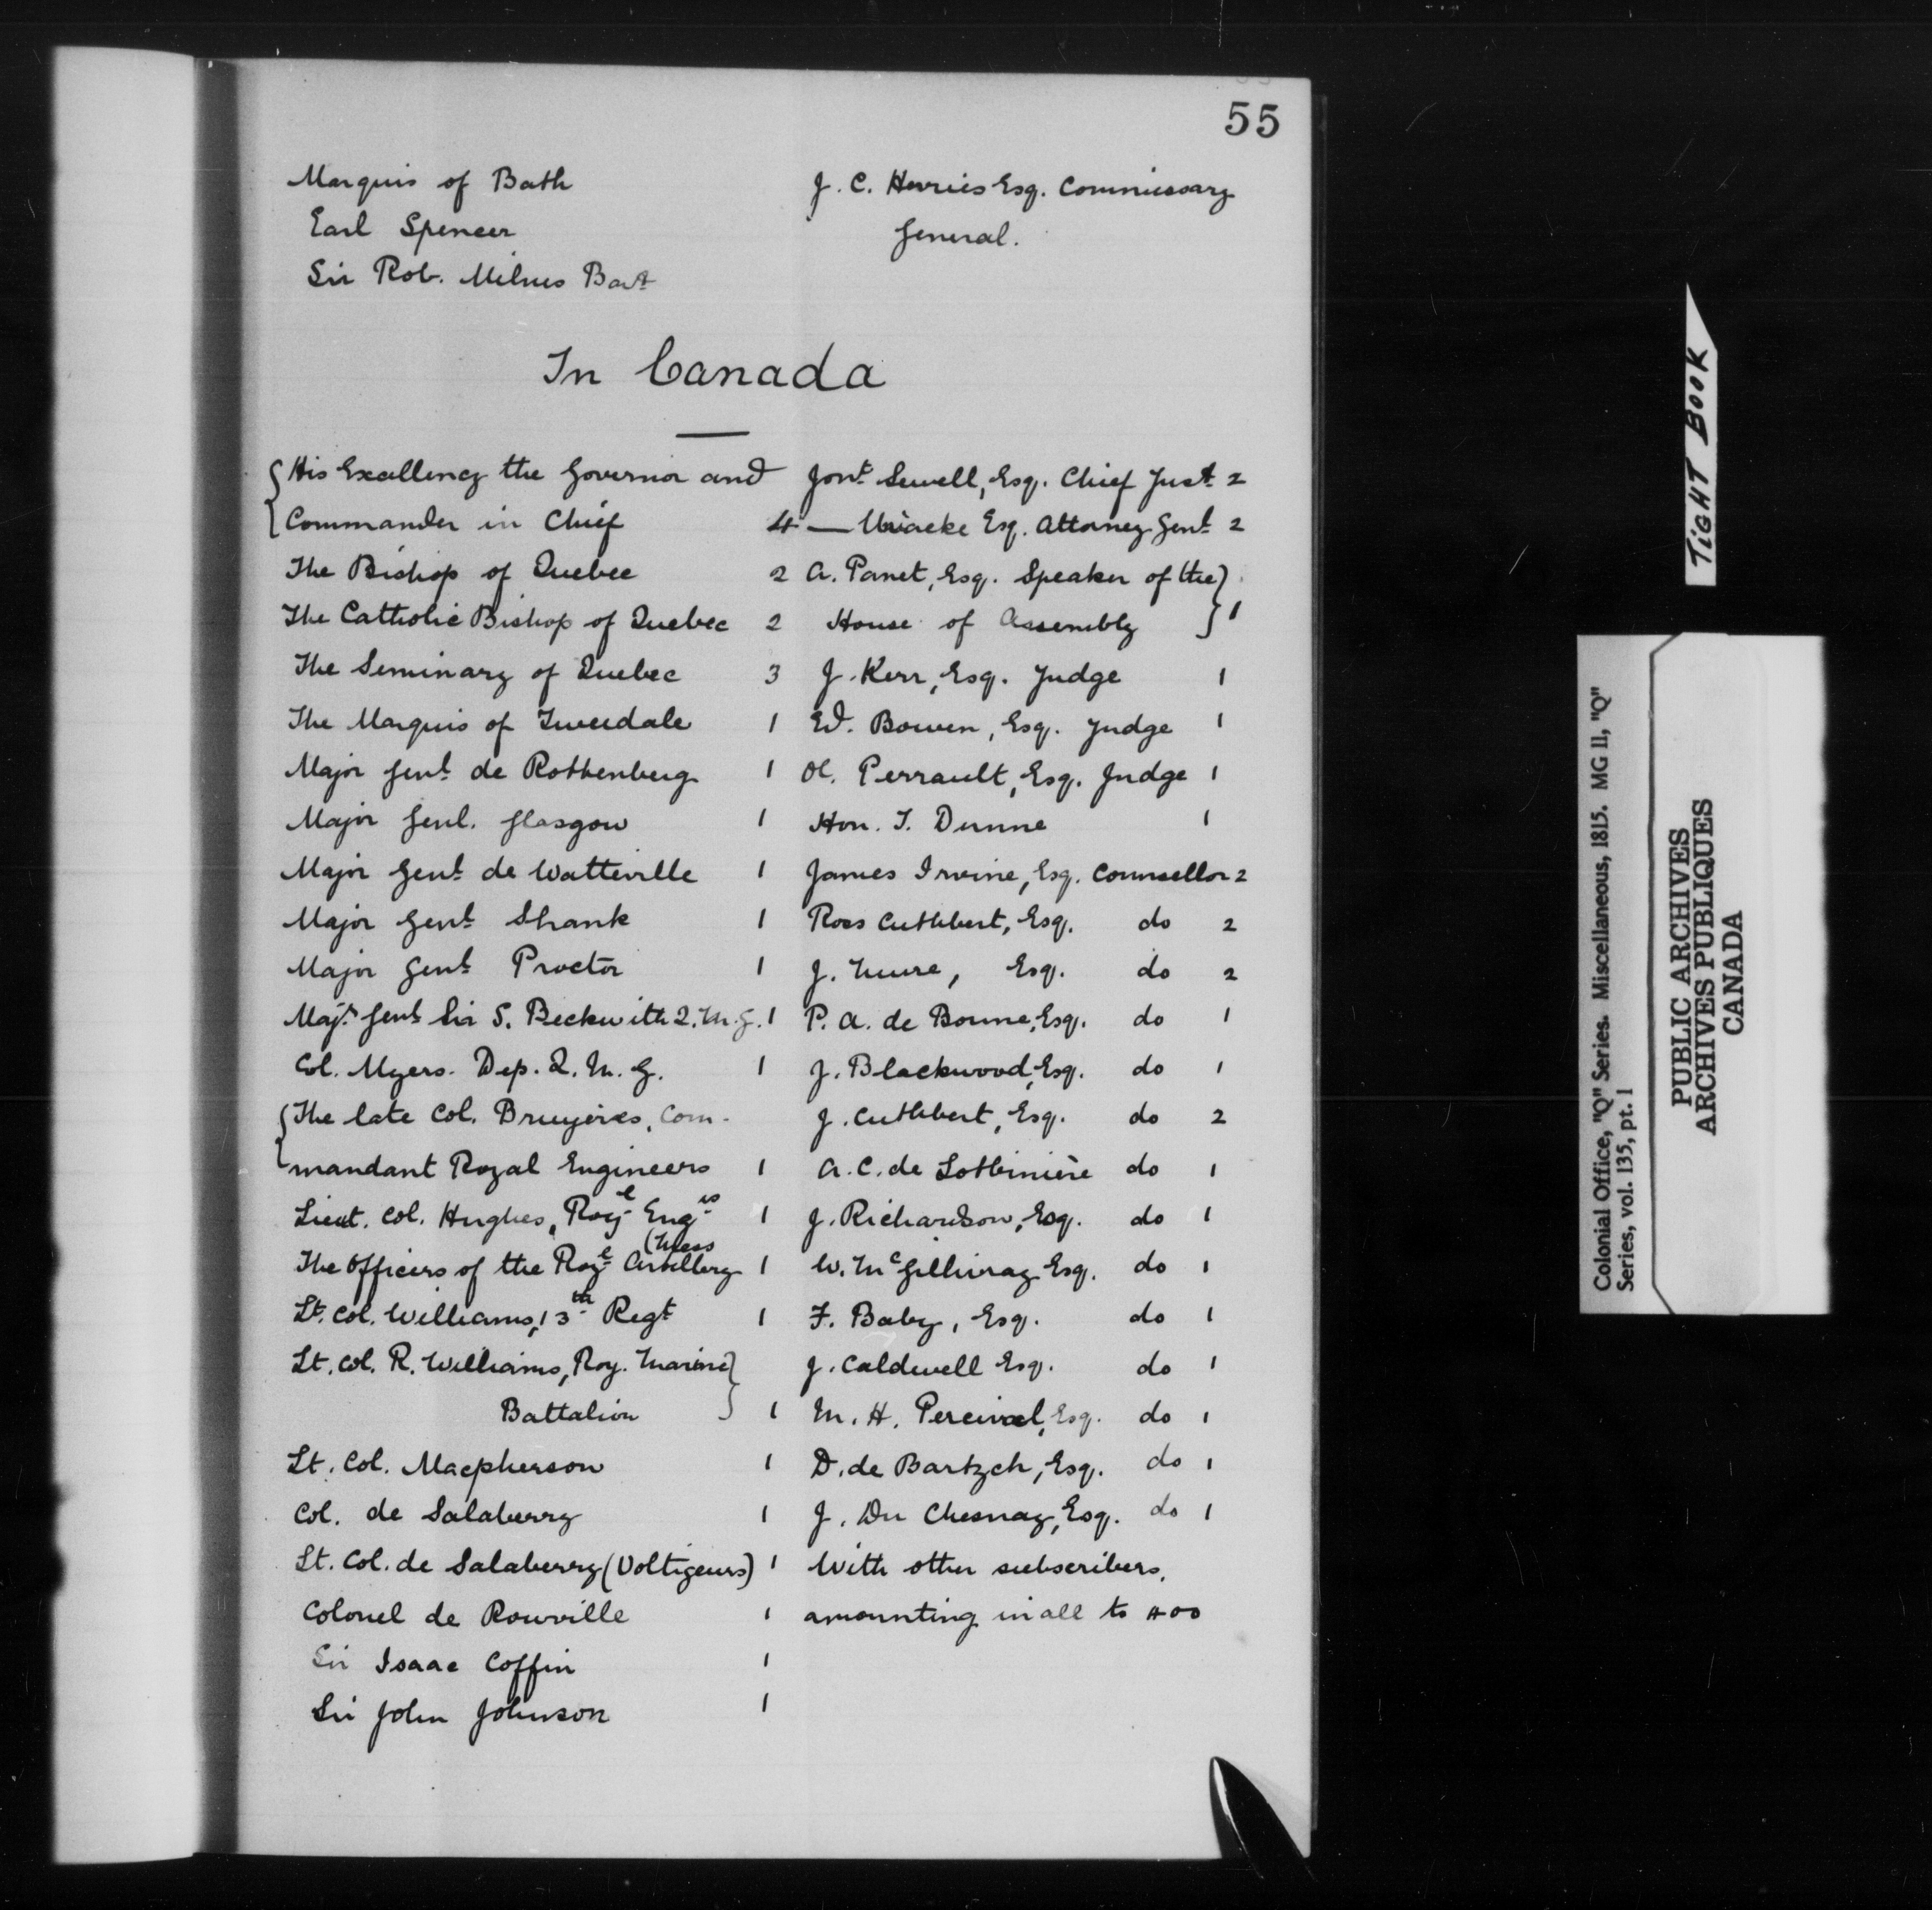 55
Marquis of Bath
Earl Spencer
Sir Rob. Milnes Bart
J. C. Herries Esq. Commissary
General.
In Canada
His Excellency the Governor and
Commander in Chief 4
The Bishop of Quebec 2
The Catholic Bishop of Quebec 2
The Seminary of Quebec 3
The Marquis of Tweedale 1
Major Genl de Rottenberg 1
Major Genl. Glasgow 1
Major Genl de Watteville 1
Major Genl Shank 1
Major Genl Proctor 1
Majr Genl Sir S. Beckwith Q. M. G. 1
Col. Myers. Dep. Q. M. G. 1
The late Col. Bruyères, Com-
mandant Royal Engineers 1
Lieut. Col. Hughes, Royl Engrs 1
(Mess
The Officers of the Royl Artillery 1
Lt. Col. Williams, 13th Regt 1
Lt. Col. R. Williams, Roy. Marine
Battalion 1
Lt. Col. Macpherson 1
Col. de Salaberry 1
Lt. Col. de Salaberry (Voltigeurs) 1
Colonel de Rouville 1
Sir Isaac Coffin 1
Sir John Johnson 1
Jont Sewell, Esq. Chief Just 2
— Uniacke Esq. Attorney Genl 2
A. Panet, Esq. Speaker of the
House of Assembly 1
J. Kerr, Esq. Judge 1
Ed. Bowen, Esq. Judge 1
Ol. Perrault, Esq. Judge 1
Hon. T. Dunne 1
James Irvine, Esq. Counsellor 2
Ross Cuthbert, Esq. do 2
J. Mure, Esq. do 2
P. A. de Bonne, Esq. do 1
J. Blackwood, Esq. do 1
J. Cuthbert, Esq. do 2
A. C. de Lotbinière do 1
J. Richardson, Esq. do 1
W. McGillivray Esq. do 1
F. Baby, Esq. do 1
J. Caldwell Esq. do 1
M. H. Perceval, Esq. do 1
D. de Bartzch, Esq. do 1
J. Du Chesnay, Esq. do 1
With other subscribers,
amounting in all to 400
TIGHT BOOK
Colonial Office, "Q" Series. Miscellaneous, 1815. MG 11, "Q"
Series, vol. 135, pt. 1
PUBLIC ARCHIVES
ARCHIVES PUBLIQUES
CANADA